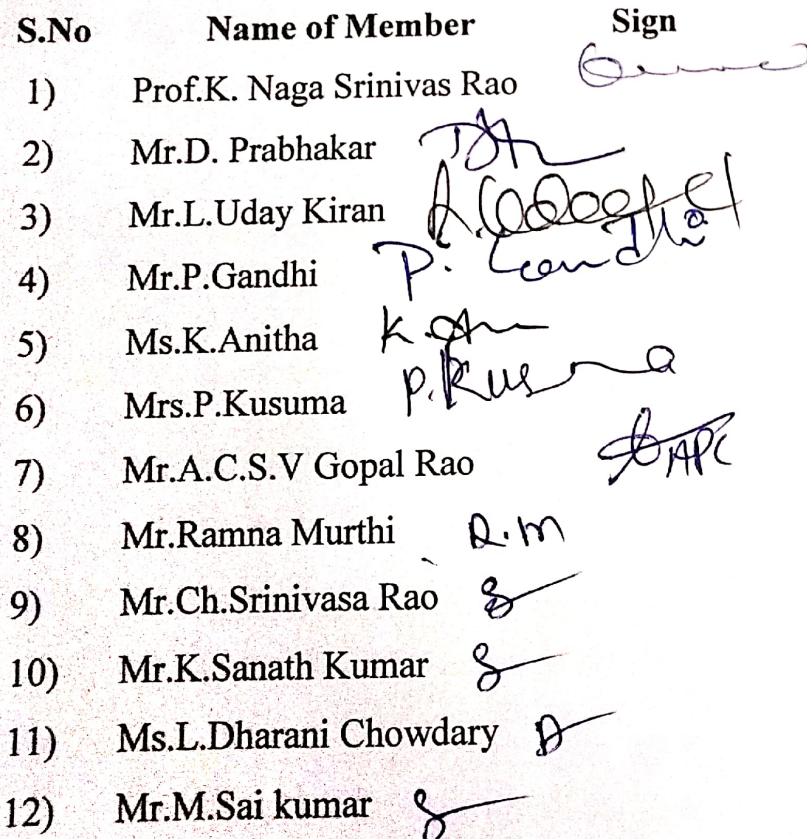 S.No Name of Member Sign
1) Prof.K. Naga Srinivas Rao
2) Mr.D. Prabhakar
3) Mr.L.Uday Kiran
4) Mr.P.Gandhi P. Gandhi
5) Ms.K.Anitha K
6) Mrs.P.Kusuma P.Kusma
7) Mr.A.C.S.V Gopal Rao
8) Mr.Ramna Murthi R.M
9) Mr.Ch.Srinivasa Rao
10) Mr.K.Sanath Kumar
11) Ms.L.Dharani Chowdary
12) Mr.M.Sai kumar